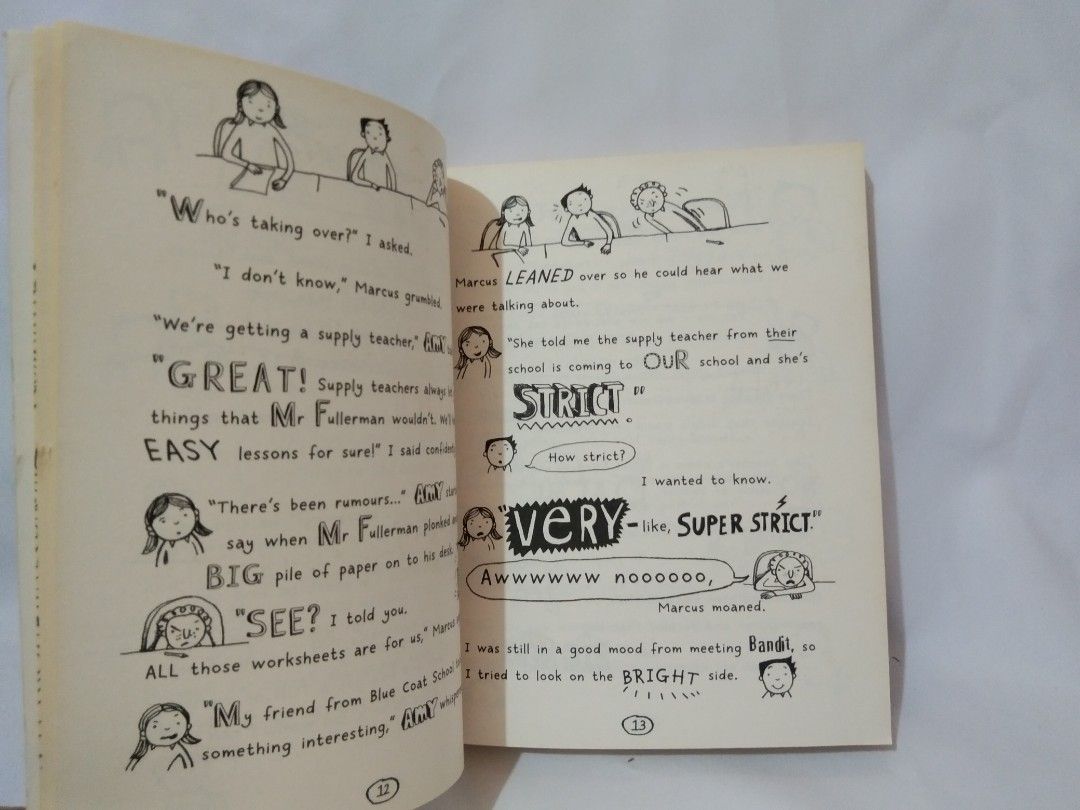 "Who's taking over?" I asked.
"I don't know," Marcus grumbled.
"We're getting a supply teacher," AMY
"GREAT! Supply teachers always
things that Mr Fullerman wouldn't. We'll
EASY lessons for sure!" I said
"There's been rumours..." AMY
say when Mr Fullerman plonked
BIG pile of paper on to his desk.
"SEE? I told you.
ALL those worksheets are for us," Marcus
"My friend from Blue Coat School
something interesting," AMY
12
Marcus LEANED over so he could hear what we
were talking about.
"She told me the supply teacher from their
school is coming to OUR school and she's
STRICT."
How strict?
I wanted to know.
"VERY-like, SUPER STRICT."
Awwwwww noooooo,
Marcus moaned.
I was still in a good mood from meeting Bandit, so
I tried to look on the BRIGHT side.
13